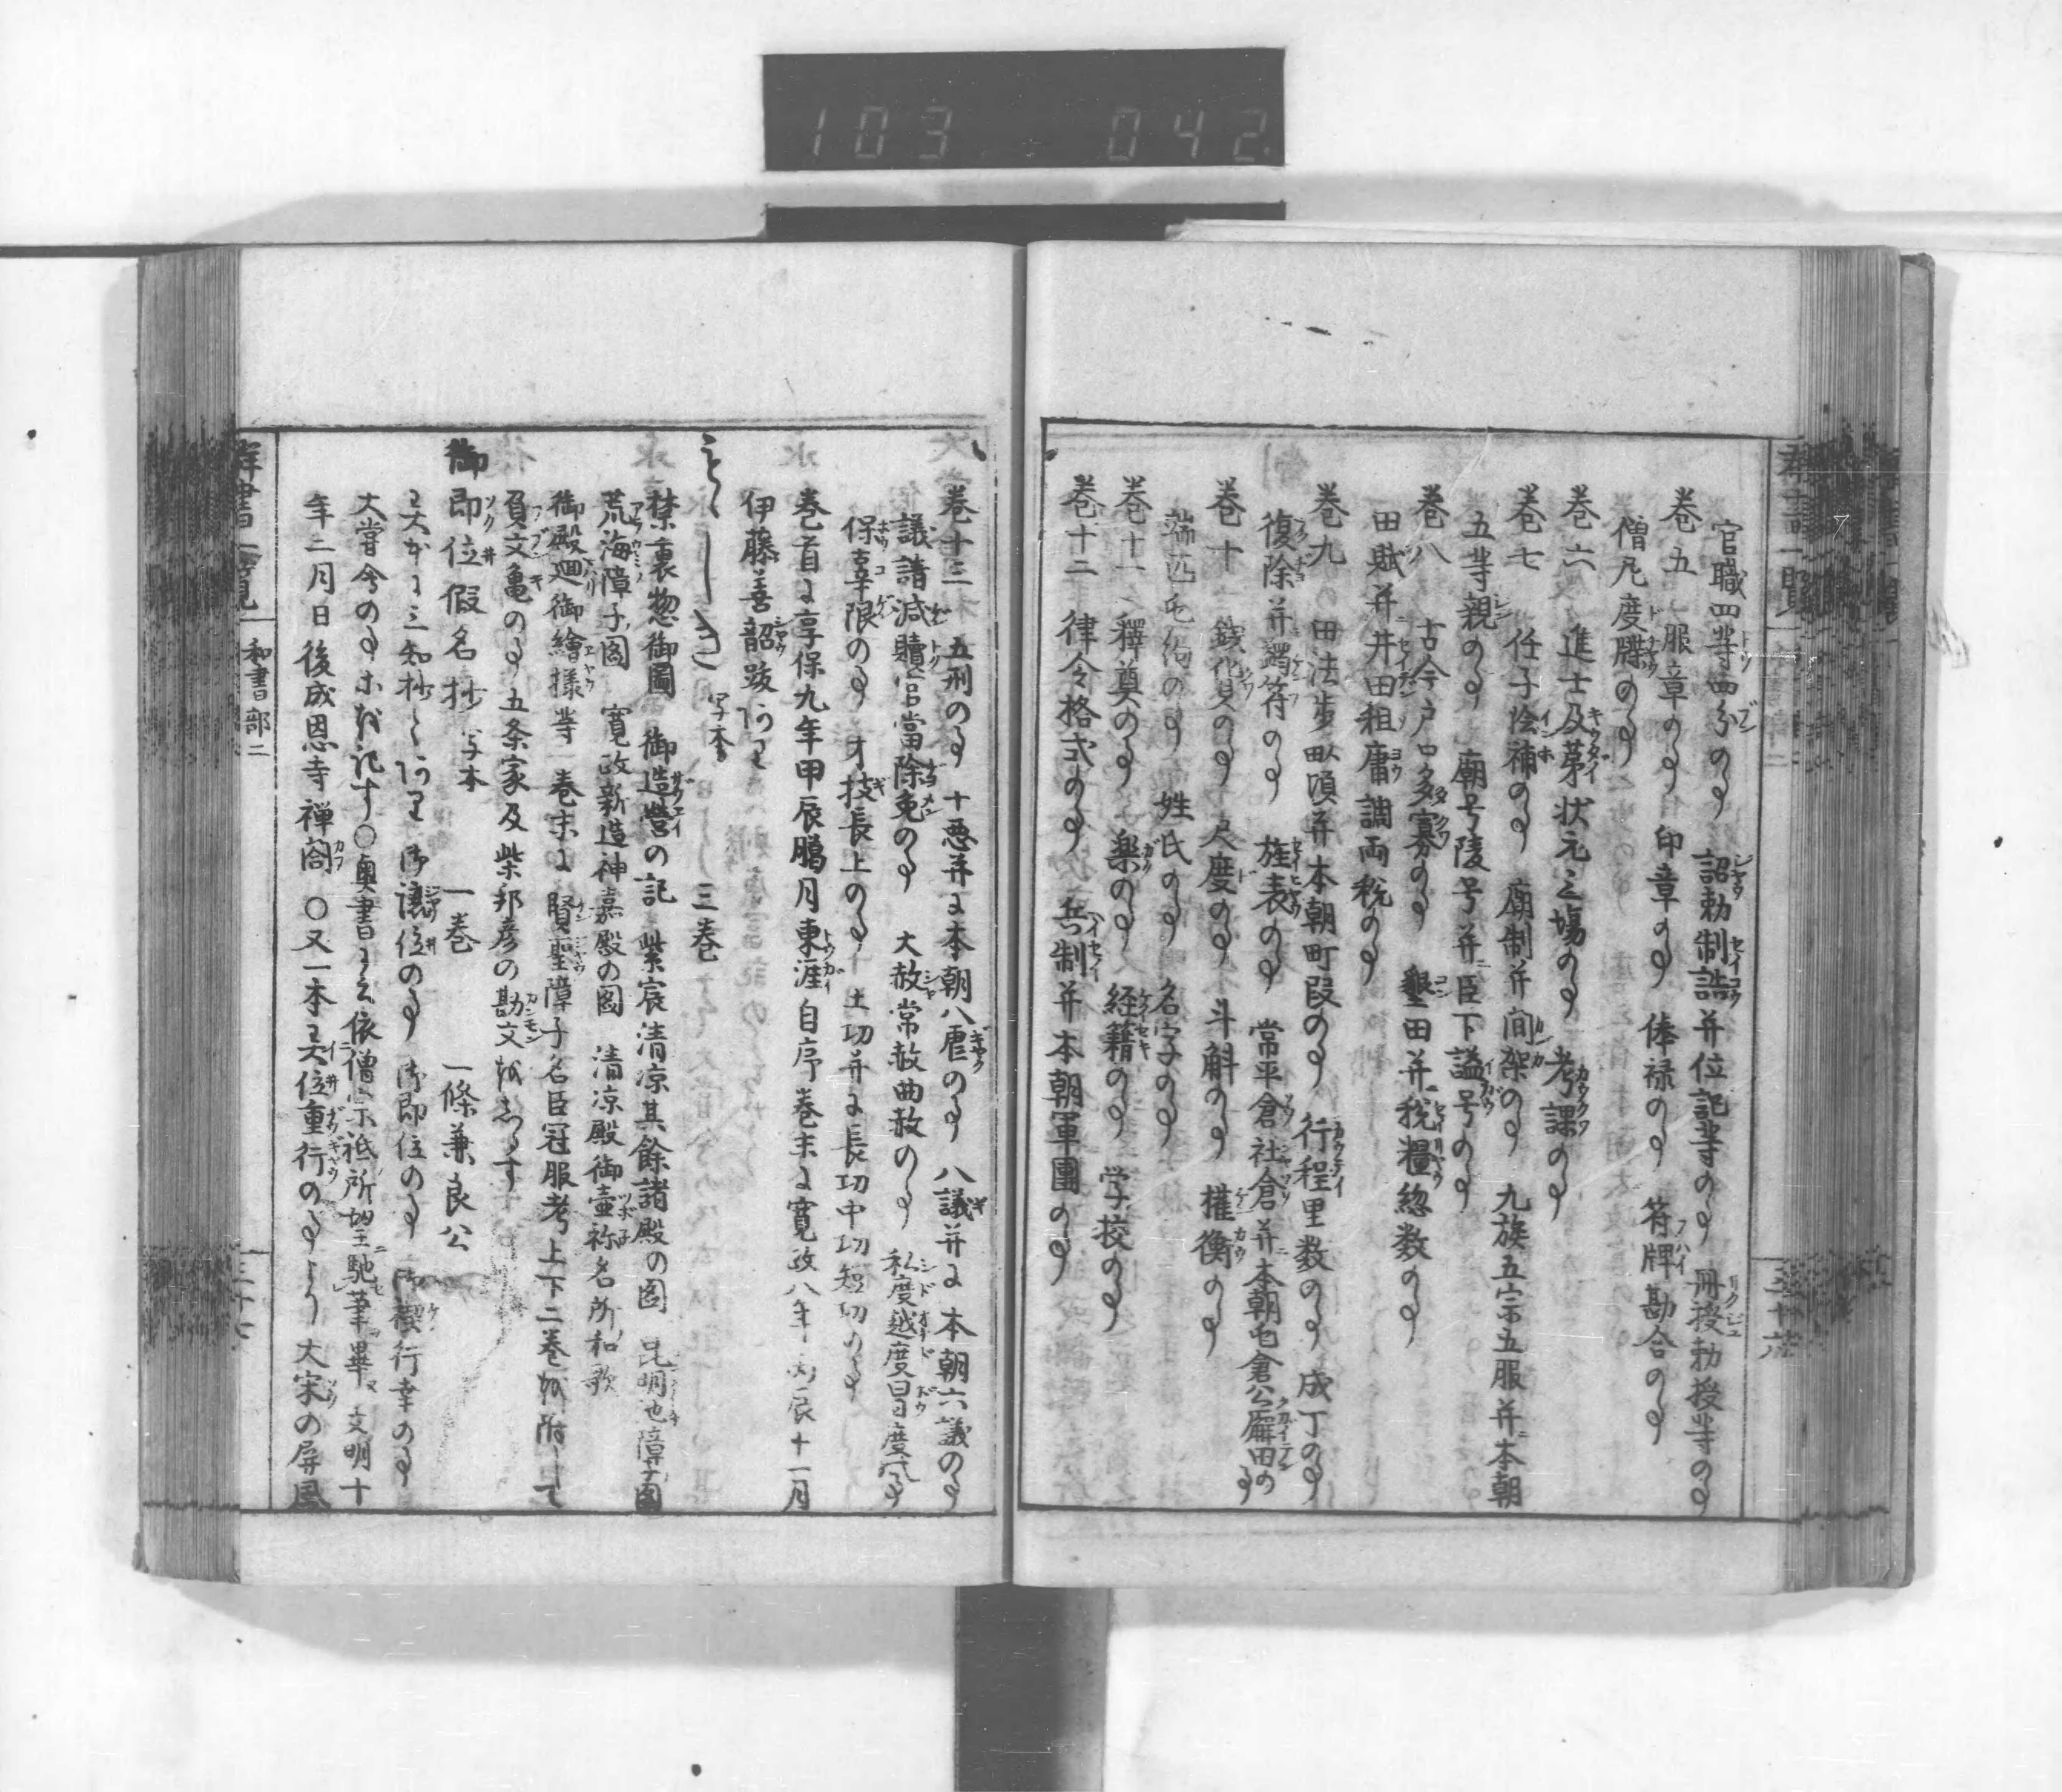 103 042
群書一覧
三十六
官職四等四分の事 詔勅制誥并位記等の事 冊授勅授等の事
巻五 服章の事 印章の事 俸禄の事 符牌勘合の事
僧尼度牒の事
巻六 進士及第状元之場の事 考課の事
巻七 任子陰補の事 廟制并間架の事 九族五宗五服并本朝
五等親の事 廟号陵号并臣下諡号の事
巻八 古今戸口多寡の事 墾田并税糧総数の事
田賦并井田租庸調両税の事
巻九 田法歩畝頃并本朝町段の事 行程里数の事 成丁の事
復除并蠲符の事 旌表の事 常平倉社倉并本朝屯倉公廨田の事
巻十 銭貨の事 尺度の事 斗斛の事 権衡の事
端匹屯絇の事 姓氏の事 名字の事
巻十一 釋奠の事 樂の事 経籍の事 学校の事
巻十二 律令格式の事 兵制并本朝軍團の事
巻十三 五刑の事 十悪并に本朝八虐の事 八議并に本朝六議の事
議請減贖官當除免の事 大赦常赦曲赦の事 私度越度冒度の事
保辜限の事 才技長上の事 土功并に長功中功短功の事
巻首に享保九年甲辰臈月東涯自序 巻末に寛政八年丙辰十一月
伊藤善韶跋あり
写本 三巻
禁裏惣御圖 御造營の記 紫宸清凉其餘諸殿の図 昆明池障子図
荒海障子図 寛政新造神嘉殿の図 清凉殿御壷祢名所和歌
御殿廻御繪様等一巻末に賢聖障子名臣冠服考上下二巻を附して
負文亀の事五条家及柴邦彦の勘文をしるす
御即位假名抄 写本 一巻 一條兼良公
三知抄とあり 御譲位の事 御即位の事 御禊行幸の事
大嘗会の事ホを記す○奥書に云依僧宗祇所望馳筆畢 文明十
年二月日後成恩寺禅閤 ○又一本異位重行の事より大宋の屏風
群書一覧 和書部二
三十七